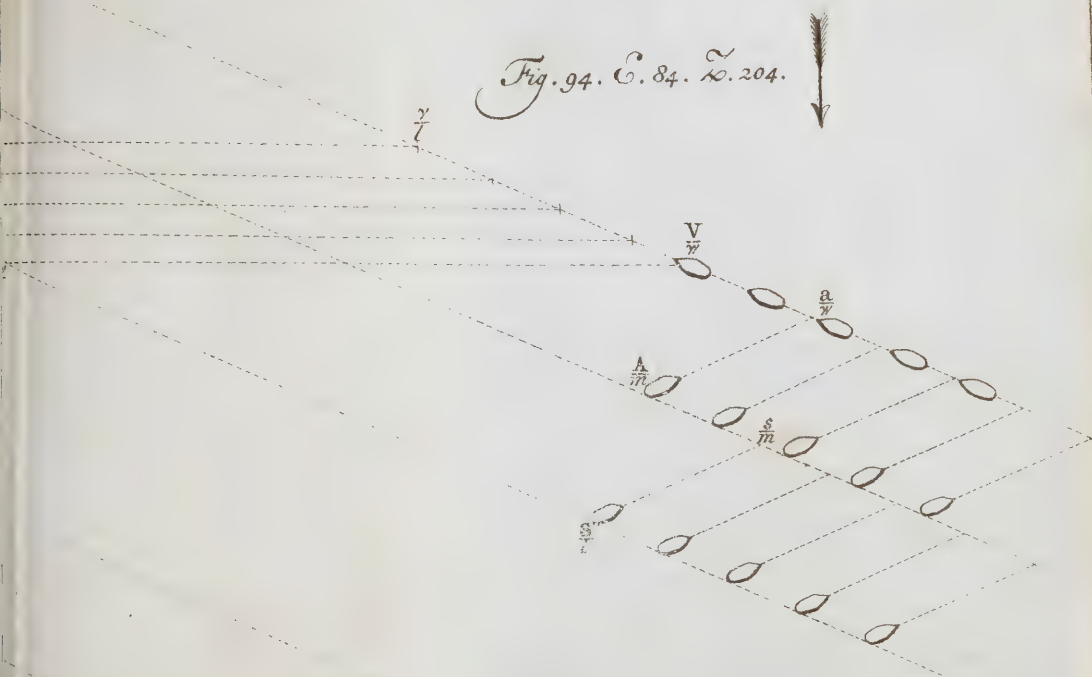 Fig. 94. C. 84. Z. 204.
V
w
a
w
A
m
s
m
S